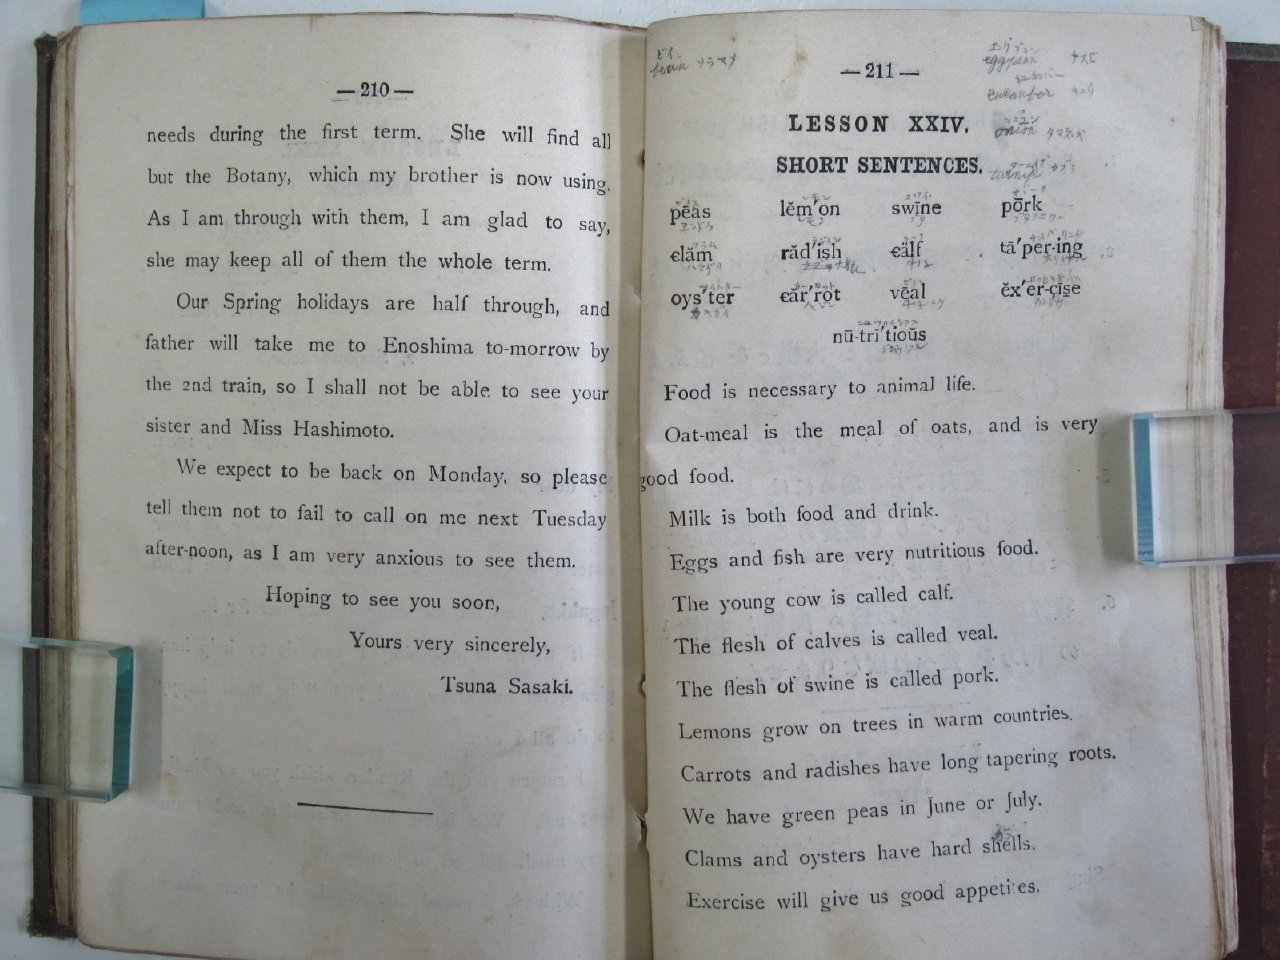 —210—
needs during the first term. She will find all
but the Botany, which my brother is now using.
As I am through with them, I am glad to say,
she may keep all of them the whole term.
Our Spring holidays are half through, and
father will take me to Enoshima to-morrow by
the 2nd train, so I shall not be able to see your
sister and Miss Hashimoto.
We expect to be back on Monday, so please
tell them not to fail to call on me next Tuesday
after-noon, as I am very anxious to see them.
Hoping to see you soon,
Yours very sincerely,
Tsuna Sasaki.
bean ソラマメ
—211—
eggplan ナスビ
cucumbar
LESSON XXIV.
onion タマネギ
SHORT SENTENCES.
turnip カブラ
pēas lĕm'on swīne pōrk
エンドウ
clăm răd'ish cälf tā'per-ing
oys'ter căr'rot vēal ĕx'er-çīşe
nū-trĭ'tioŭs
Food is necessary to animal life.
Oat-meal is the meal of oats, and is very
good food.
Milk is both food and drink.
Eggs and fish are very nutritious food.
The young cow is called calf.
The flesh of calves is called veal.
The flesh of swine is called pork.
Lemons grow on trees in warm countries.
Carrots and radishes have long tapering roots.
We have green peas in June or July.
Clams and oysters have hard shells.
Exercise will give us good appetites.